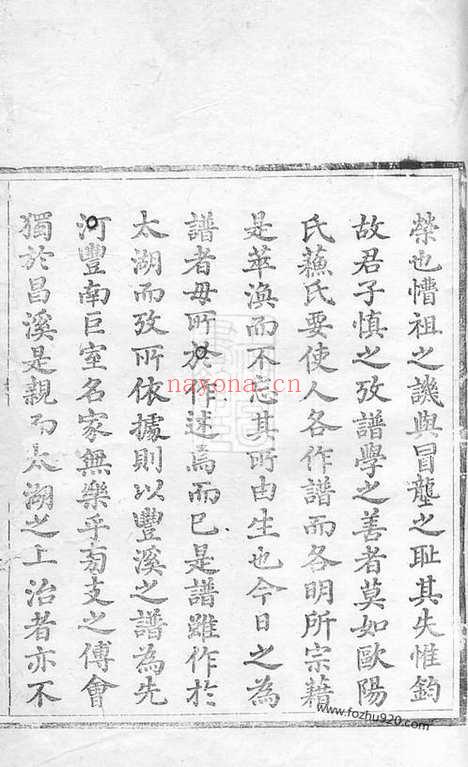 榮也懵祖之譏與冒壟之耻其失惟鈞
故君子慎之攷譜學之善者莫如歐陽
氏蘓氏要使人各作譜而各明所宗藉
是萃渙而不忘其所由生也今日之為
譜者毋所於作述焉而已是譜雖作於
太湖而攷所依據則以豐溪之譜為先
河豐南巨室名家無樂乎菊支之傅會
獨於昌溪是親而太湖之上治者亦不
nayona.cn
www.fozhu920.com